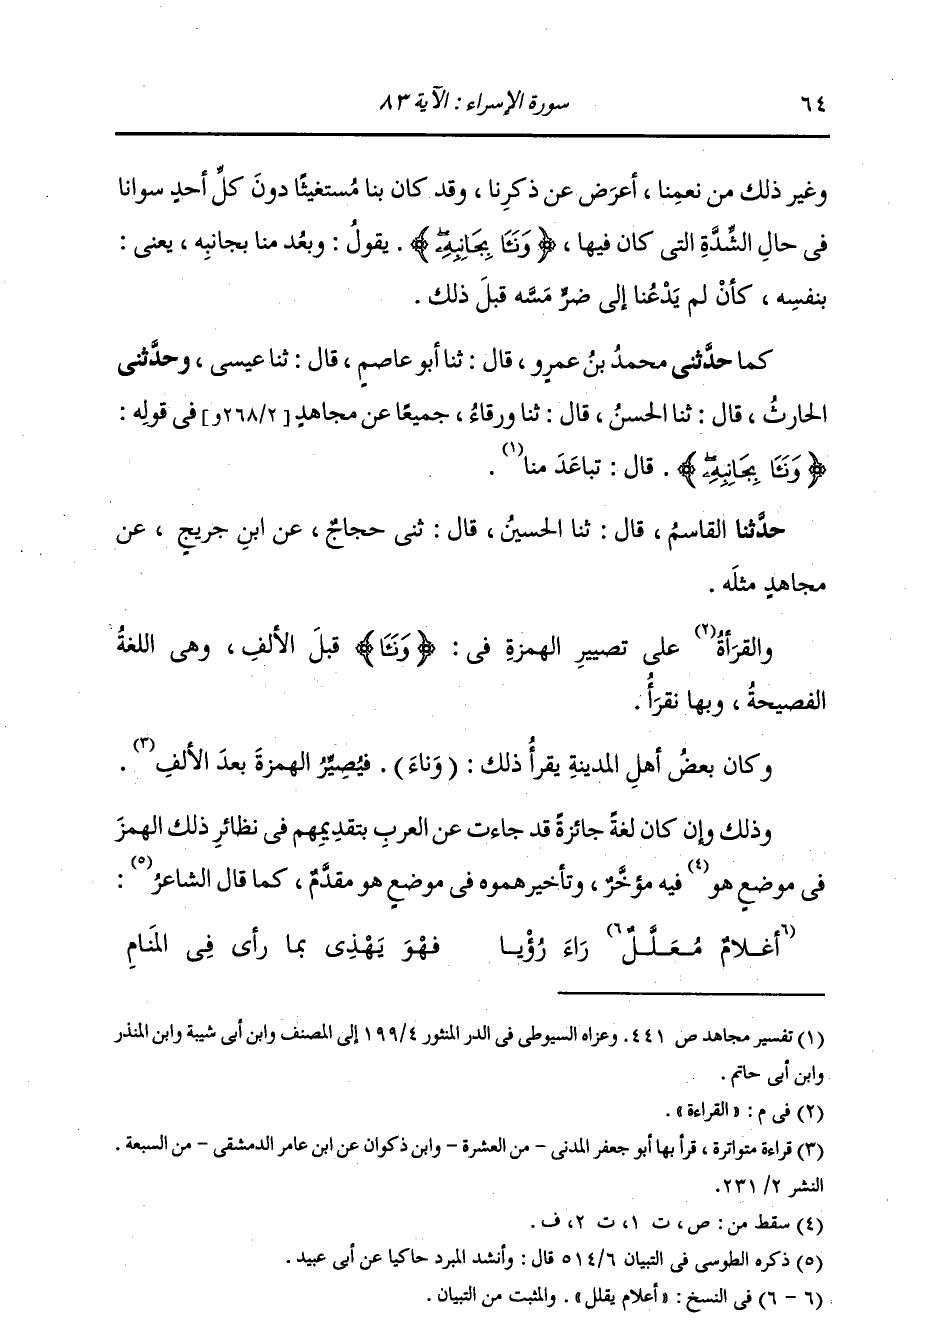 ٦٤ سورة الإسراء : الآية ٨٣
وغير ذلك من نعمِنا ، أعرَض عن ذكرِنا ، وقد كان بنا مُستغيثًا دونَ كلِّ أحدٍ سوانا
فى حالِ الشِّدَّةِ التى كان فيها ، ﴿ وَنَـَٔا بِجَانِبِهِۦۖ ﴾ . يقولُ : وبعُد منا بجانبِه ، يعنى :
بنفسِه ، كأنْ لم يَدْعُنا إلى ضرٍّ مَسَّه قبلَ ذلك .
كما حدَّثنى محمدُ بنُ عمرٍو ، قال : ثنا أبو عاصمٍ ، قال : ثنا عيسى ، وحدَّثنى
الحارثُ ، قال : ثنا الحسنُ ، قال : ثنا ورقاءُ ، جميعًا عن مجاهدٍ [٢٦٨/٢و] فى قولِه :
﴿ وَنَـَٔا بِجَانِبِهِۦۖ ﴾ . قال : تباعَدَ منا(١) .
حدَّثنا القاسمُ ، قال : ثنا الحسينُ ، قال : ثنى حجاجٌ ، عن ابنِ جريجٍ ، عن
مجاهدٍ مثلَه .
والقرَأةُ(٢) على تصييرِ الهمزةِ فى : ﴿ وَنَـَٔا ﴾ قبلَ الألفِ ، وهى اللغةُ
الفصيحةُ ، وبها نقرَأُ .
وكان بعضُ أهلِ المدينةِ يقرأُ ذلك : ( وَناءَ ) . فيُصيِّرُ الهمزةَ بعدَ الألفِ(٣) .
وذلك وإن كان لغةً جائزةً قد جاءت عن العربِ بتقديمِهم فى نظائرِ ذلك الهمزَ
فى موضعٍ هو(٤) فيه مؤخَّرٌ ، وتأخيرهموه فى موضعٍ هو مقدَّمٌ ، كما قال الشاعرُ(٥) :
(٦أغلامٌ مُعَلَّلٌ٦) رَاءَ رُؤْيا فهْوَ يَهْذِى بما رأى فِى المَنامِ
(١) تفسير مجاهد ص ٤٤١. وعزاه السيوطى فى الدر المنثور ١٩٩/٤ إلى المصنف وابن أبى شيبة وابن المنذر
وابن أبى حاتم .
(٢) فى م : « القراءة » .
(٣) قراءة متواترة ، قرأ بها أبو جعفر المدنى – من العشرة – وابن ذكوان عن ابن عامر الدمشقى – من السبعة .
النشر ٢/ ٢٣١.
(٤) سقط من : ص ، ت ١، ت ٢، ف .
(٥) ذكره الطوسى فى التبيان ٥١٤/٦ قال : وأنشد المبرد حاكيا عن أبى عبيد .
(٦ – ٦) فى النسخ : « أعلام يقلل » . والمثبت من التبيان .